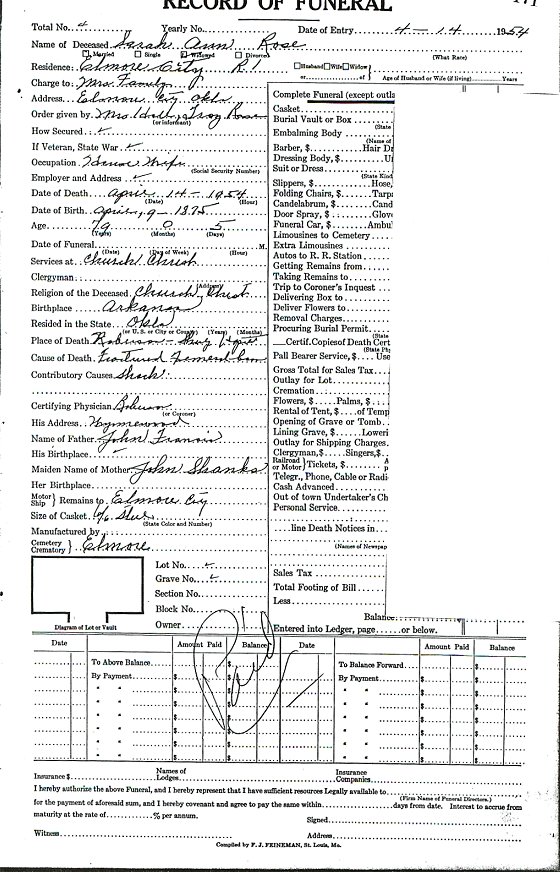 RECORD OF FUNERAL
Total No. 4 Yearly No. Date of Entry 4-14 1954
Name of Deceased Sarah Ann Rose
Married Single Widowed Divorced (What Race)
Residence: Elmore City R1 Husband Wife Widow
or of Age of Husband or Wife (if living) Years
Charge to: Mrs. Family
Address Elmore City Okla
Order given by Mrs.
(or informant)
How Secured
If Veteran, State War
Occupation House Wife
(Social Security Number)
Employer and Address
Date of Death April 14-1954
(Date) (Hour)
Date of Birth April, 9-1875
Age 79 0 5
(Years) (Months) (Days)
Date of Funeral M.
(Date) (Day of Week) (Hour)
Services at Church Christ
(Address)
Clergyman
Religion of the Deceased Church Christ
Birthplace Arkansas
Resided in the State Okla
(or U. S. or City or County) (Years) (Months)
Place of Death
Cause of Death Fractured
Contributory Causes Shock
Certifying Physician Robinson
(or Coroner)
His Address Wynnewood
Name of Father John Francis
His Birthplace
Maiden Name of Mother John Shanks
Her Birthplace
Motor Ship } Remains to Elmore City
Size of Casket
(State Color and Number)
Manufactured by
Cemetery Crematory } Elmore
Lot No.
Grave No.
Section No.
Block No.
Owner
Diagram of Lot or Vault
Complete Funeral (except outla
Casket
Burial Vault or Box
(State
Embalming Body
(Name of
Barber, $ Hair Dr
Dressing Body, $ U
Suit or Dress
(State Kind
Slippers, $ Hose,
Folding Chairs, $ Tarp
Candelabrum, $ Cand
Door Spray, $ Glov
Funeral Car, $ Ambul
Limousines to Cemetery
Extra Limousines
Autos to R. R. Station
Getting Remains from
Taking Remains to
Trip to Coroner's Inquest
Delivering Box to
Deliver Flowers to
Removal Charges
Procuring Burial Permit
(State
Certif. Copies of Death Cert
(State Ph
Pall Bearer Service, $ Use
Gross Total for Sales Tax
Outlay for Lot
Cremation
Flowers, $ Palms, $
Rental of Tent, $ of Temp
Opening of Grave or Tomb
Lining Grave, $ Loweri
Outlay for Shipping Charges
Clergyman, $ Singers, $
Railroad or Motor } Tickets, $
Telegr., Phone, Cable or Radi
Cash Advanced
Out of town Undertaker's Ch
Personal Service
line Death Notices in
(Names of Newspap
Sales Tax
Total Footing of Bill
Less
Balance
Entered into Ledger, page or below.
Date Amount Paid Balance Date Amount Paid Balance
To Above Balance $ To Balance Forward $
By Payment $ $ By Payment $ $
" " $ $ " " $ $
" " $ $ " " $ $
" " $ $ " " $ $
" " $ $ " " $ $
" " $ $ " " $ $
Paid
Insurance $ Names of Lodges Insurance Companies
I hereby authorize the above Funeral, and I hereby represent that I have sufficient resources Legally available to
(Firm Name of Funeral Directors.)
for the payment of aforesaid sum, and I hereby covenant and agree to pay the same within days from date. Interest to accrue from
maturity at the rate of % per annum. Signed
Witness Address
Compiled by F. J. FEINEMAN, St. Louis, Mo.